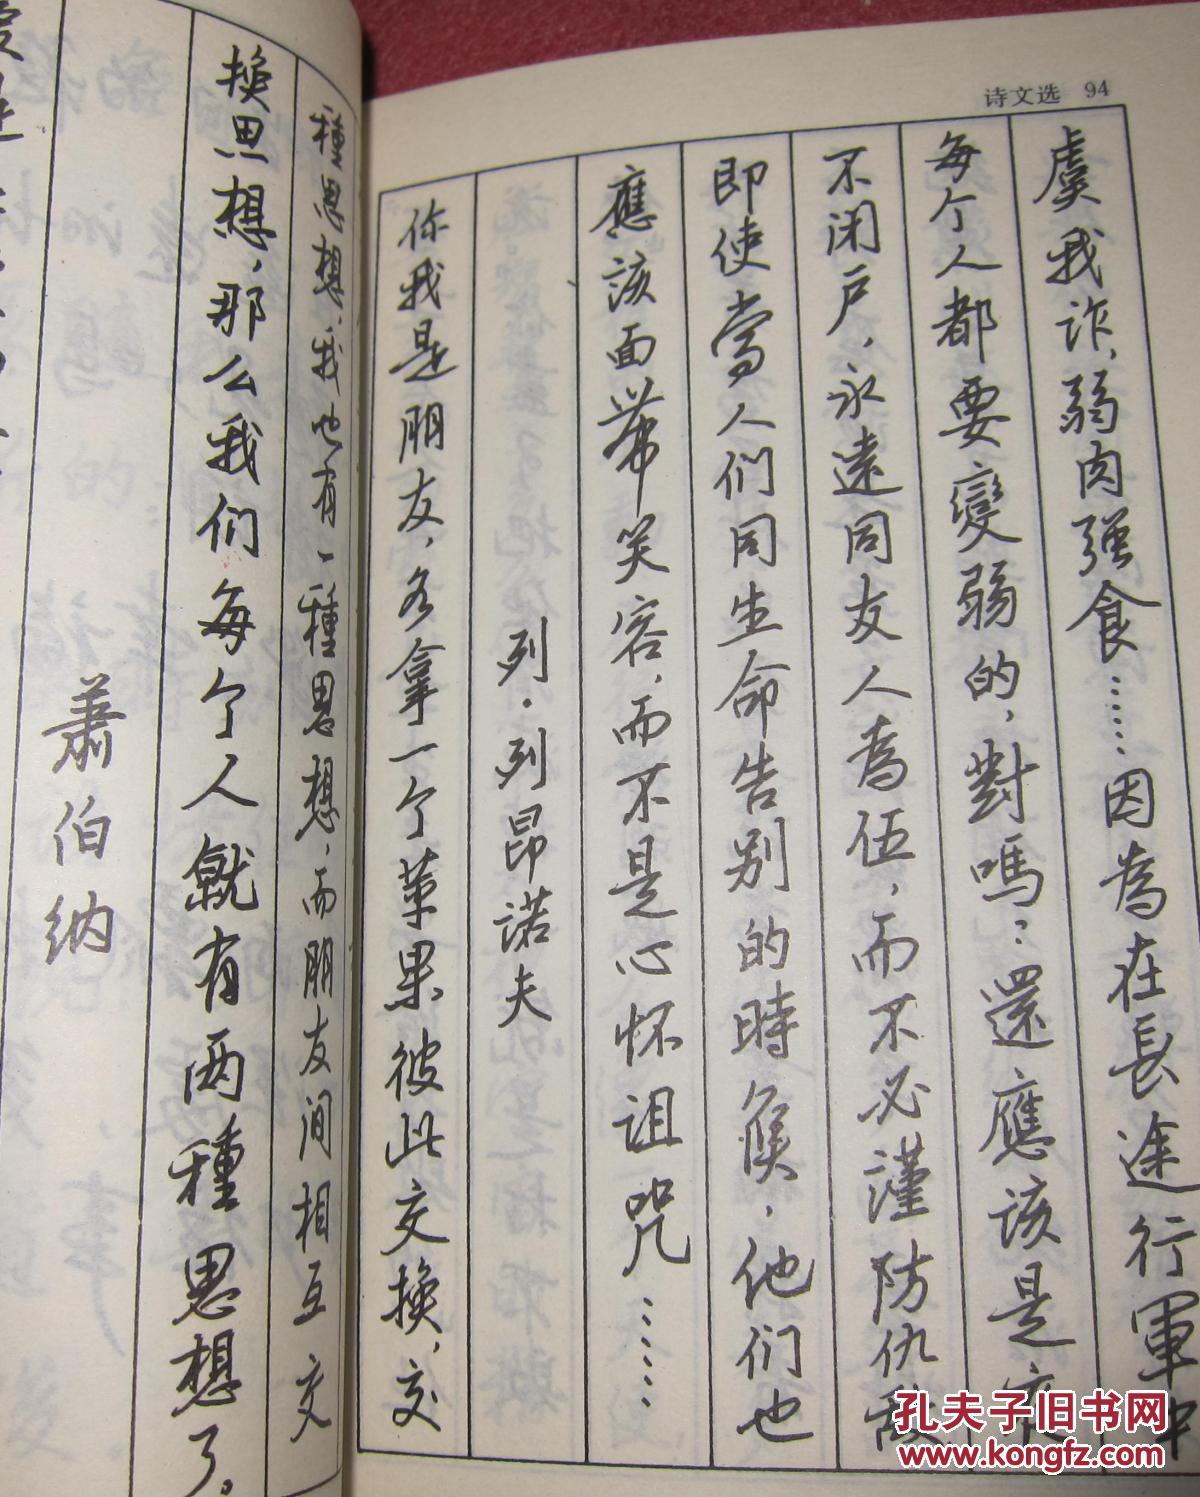 诗文选 94
虞我诈，弱肉强食……因為在長途行軍中
每个人都要變弱的，對嗎？還應該是夜
不闭户，永遠同友人為伍，而不必謹防仇敌
即使當人们同生命告别的時候，他们也
應該面帶笑容，而不是心怀诅咒……
列·列昂诺夫
你我是朋友，各拿一个苹果彼此交换，交
種思想，我也有一種思想，而朋友间相互交
换思想，那么我们每个人就有两種思想了。
萧伯纳
孔夫子旧书网
www.kongfz.com